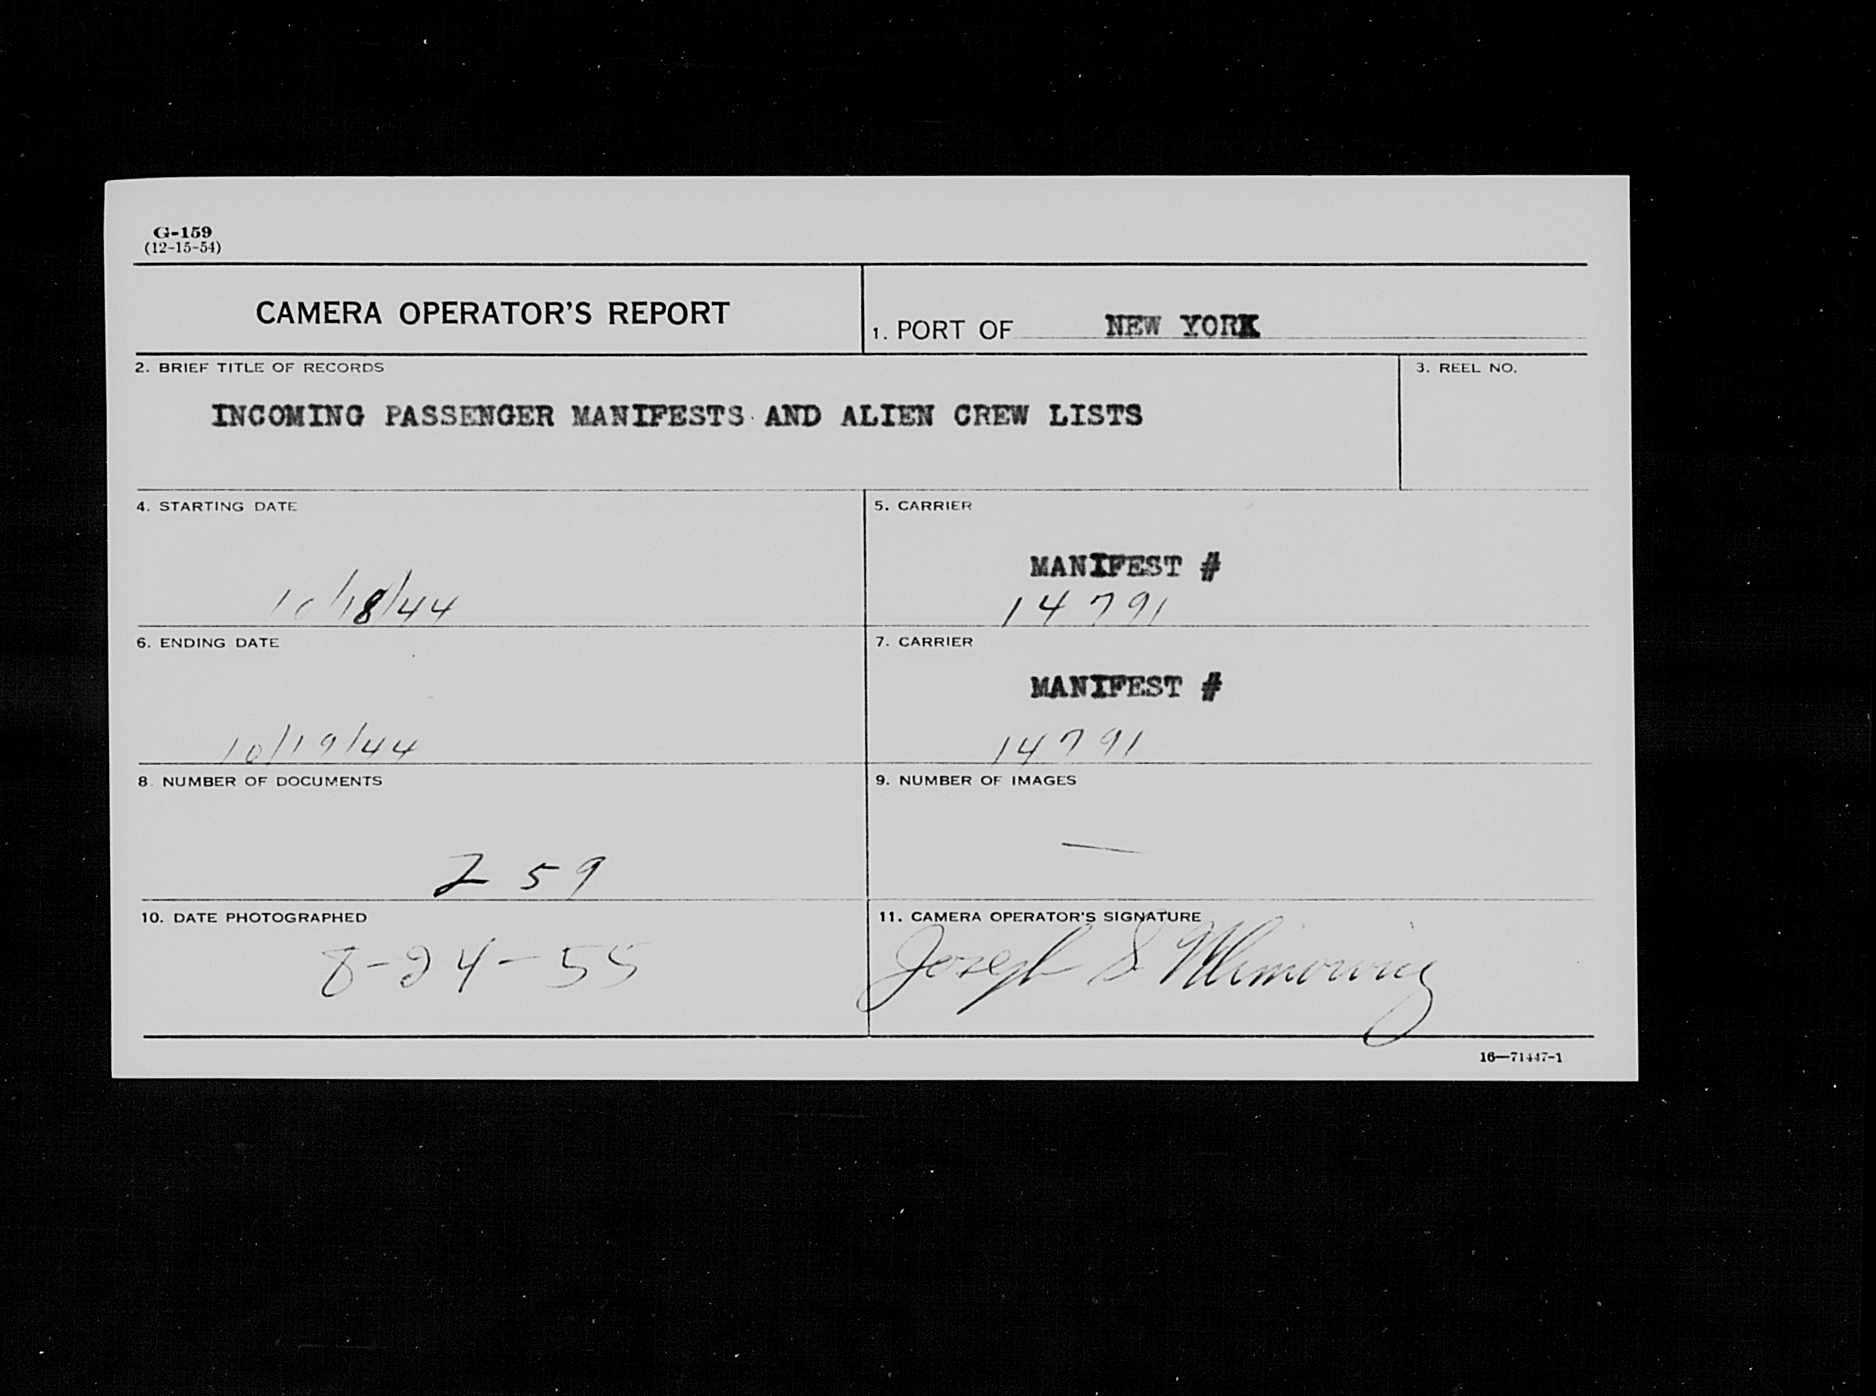 G-159
(12-15-54)
CAMERA OPERATOR'S REPORT
1. PORT OF NEW YORK
2. BRIEF TITLE OF RECORDS
3. REEL NO.
INCOMING PASSENGER MANIFESTS AND ALIEN CREW LISTS
4. STARTING DATE
10/18/44
5. CARRIER
MANIFEST #
14791
6. ENDING DATE
10/19/44
7. CARRIER
MANIFEST #
14791
8. NUMBER OF DOCUMENTS
259
9. NUMBER OF IMAGES
—
10. DATE PHOTOGRAPHED
8-24-55
11. CAMERA OPERATOR'S SIGNATURE
Joseph S
16—71447-1